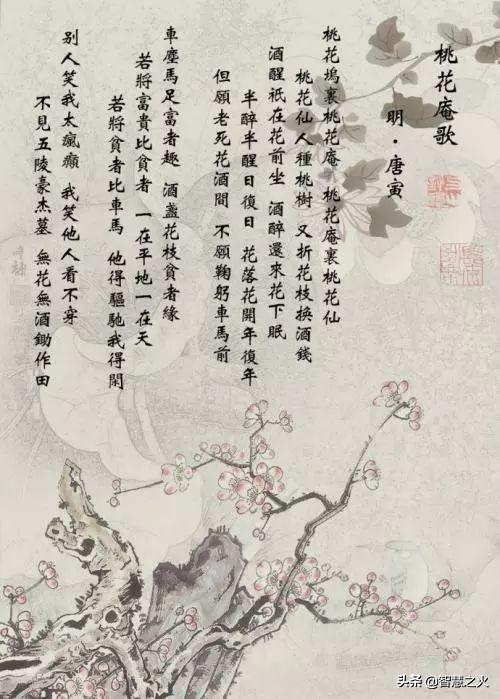 桃花庵歌
明·唐寅
桃花塢裏桃花庵 桃花庵裏桃花仙
桃花仙人種桃樹 又折花枝換酒錢
酒醒祇在花前坐 酒醉還來花下眠
半醉半醒日復日 花落花開年復年
但願老死花酒間 不願鞠躬車馬前
車塵馬足富者趣 酒盞花枝貧者緣
若將富貴比貧者 一在平地一在天
若將貧者比車馬 他得驅馳我得閑
別人笑我太瘋癲 我笑他人看不穿
不見五陵豪杰墓 無花無酒鋤作田
头条 @智慧之火